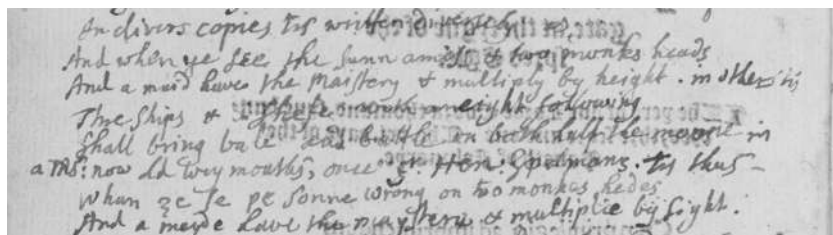 In divers copies tis written diversely as,
And when ye see the sunn amiss & two monks heads
And a maid have the Maistery & multiply by height. in other tis
Three ships & a sheld
Shall bring bale and battle on both half the moone in
a MS: now Ld Weymouths, once Sr. Hen: Spelmans. tis thus -
Whan ȝe se þe sonne wrong on two monkes hedes
And a meyde have the maystery & multiplie by sight.